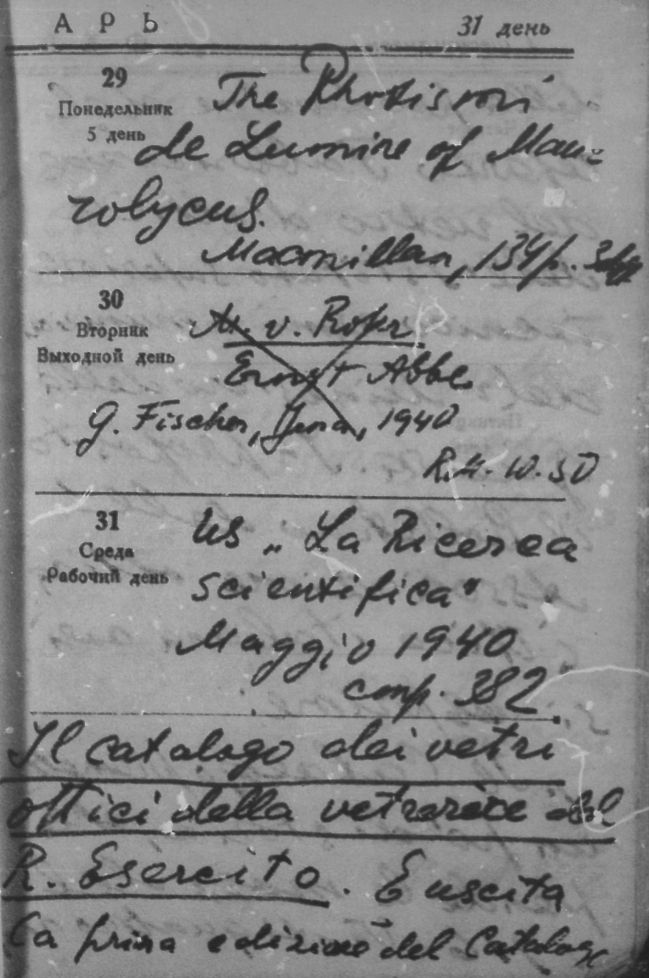 АРЬ 31 день
29
Понедельник
5 день
The Photismi
de Lumine of Mau-
rolycus.
Macmillan, 134 p.
30
Вторник
Выходной день
M. v. Rohr
Ernst Abbe
G. Fischer, Jena, 1940
R.M. 10.50
31
Среда
Рабочий день
Из „La Ricerca
scientifica“
Maggio 1940
стр. 382
Il catalogo dei vetri
ottici della vetreria del
R. Esercito. E uscita
la prima edizione del Catalogo